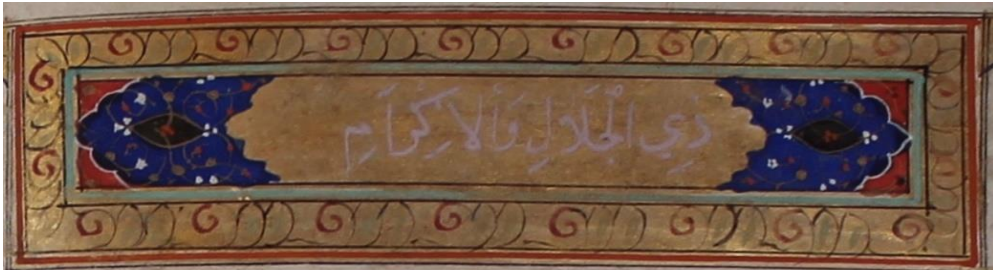 ذِي الْجَلَالِ وَالْاِكْرَامِ